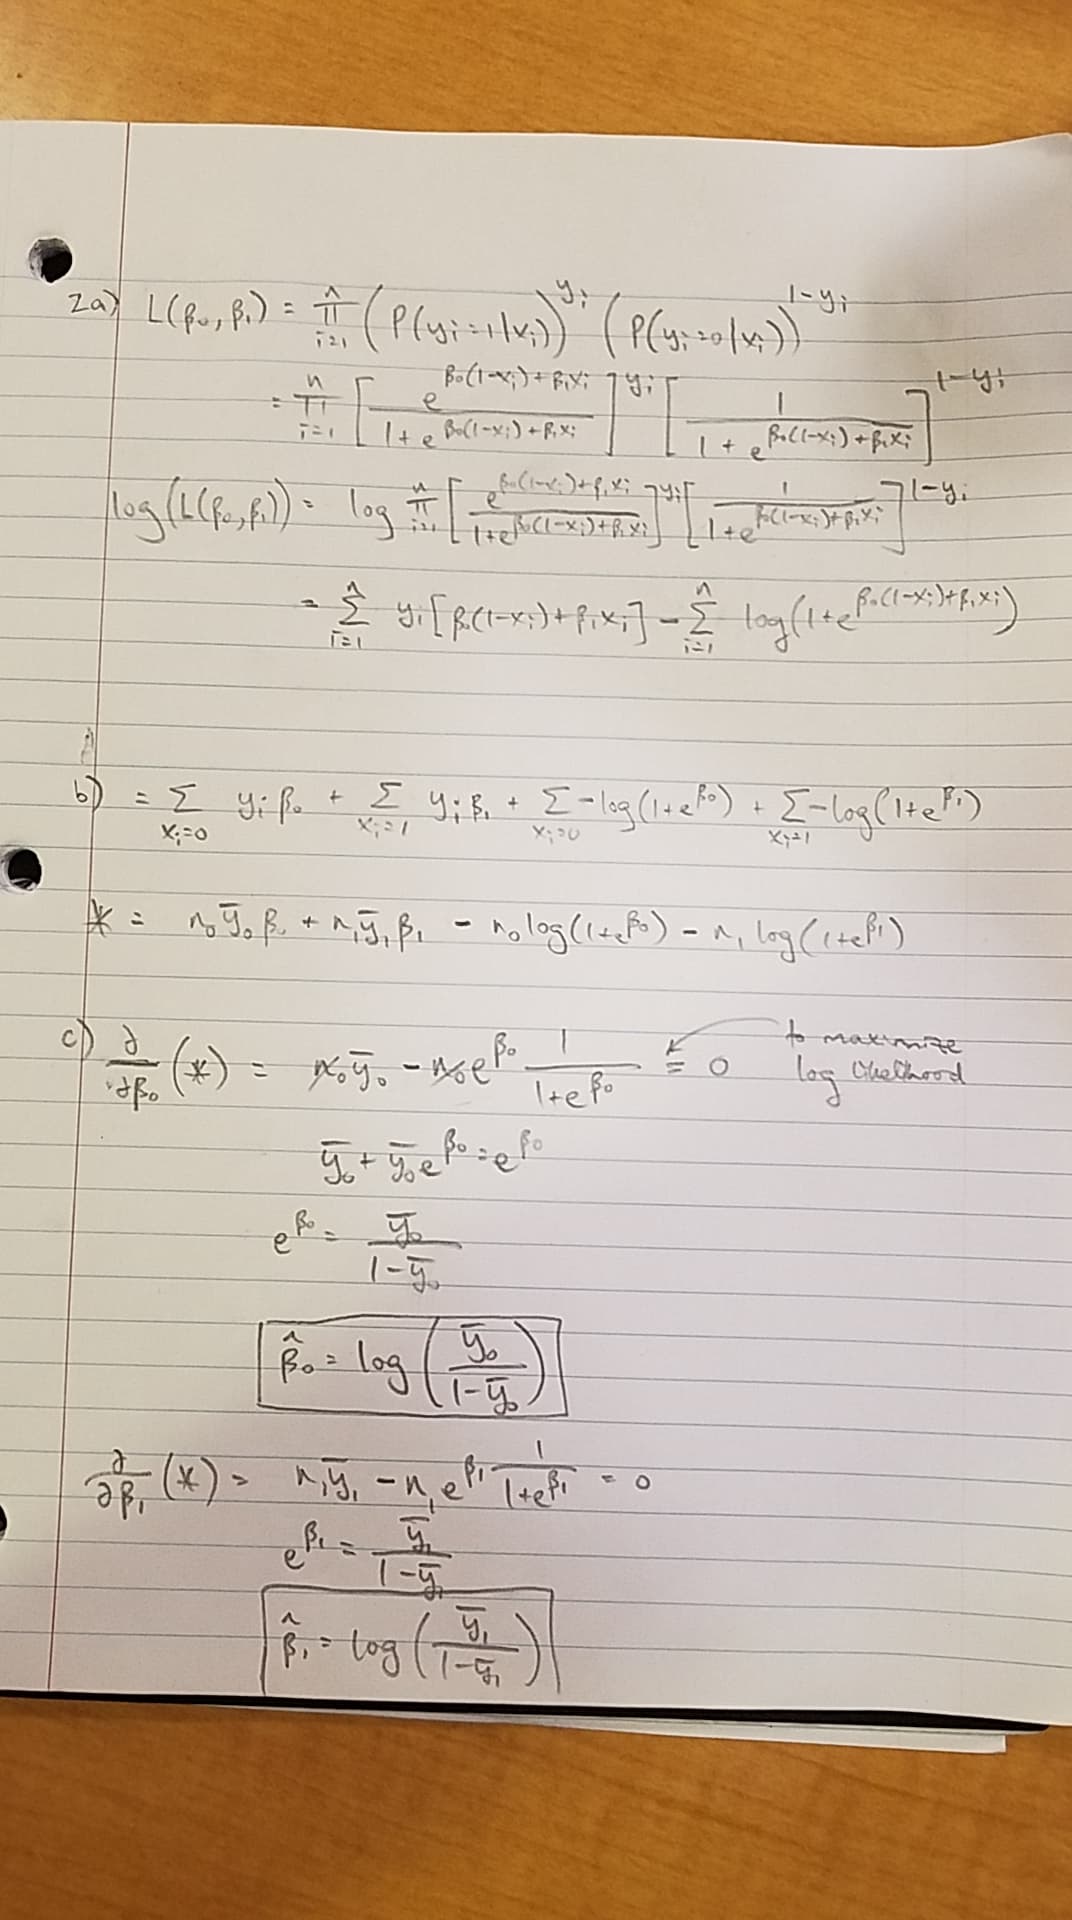 2a) L(β₀, β₁) = ∏_{i=1}^{n} (P(y_i=1|x_i))^{y_i} (P(y_i=0|x_i))^{1-y_i}
= ∏_{i=1}^{n} [e^{β₀(1-x_i)+β₁x_i} / (1+e^{β₀(1-x_i)+β₁x_i})]^{y_i} [1 / (1+e^{β₀(1-x_i)+β₁x_i})]^{1-y_i}
log(L(β₀,β₁)) = log ∏_{i=1}^{n} [e^{β₀(1-x_i)+β₁x_i} / (1+e^{β₀(1-x_i)+β₁x_i})]^{y_i} [1 / (1+e^{β₀(1-x_i)+β₁x_i})]^{1-y_i}
= ∑_{i=1}^{n} y_i[β₀(1-x_i)+β₁x_i] - ∑_{i=1}^{n} log(1+e^{β₀(1-x_i)+β₁x_i})
b) = ∑_{x_i=0} y_iβ₀ + ∑_{x_i=1} y_iβ₁ + ∑_{x_i=0} -log(1+e^{β₀}) + ∑_{x_i=1} -log(1+e^{β₁})
* = n₀ȳ₀β₀ + n₁ȳ₁β₁ - n₀log(1+e^{β₀}) - n₁log(1+e^{β₁})
c) ∂/∂β₀ (*) = n₀ȳ₀ - n₀e^{β₀} 1/(1+e^{β₀}) ≡ 0 to maximize
log likelihood
ȳ₀ + ȳ₀e^{β₀} = e^{β₀}
e^{β₀} = ȳ₀/(1-ȳ₀)
β̂₀ = log(ȳ₀/(1-ȳ₀))
∂/∂β₁ (*) = n₁ȳ₁ - n₁e^{β₁} 1/(1+e^{β₁}) = 0
e^{β₁} = ȳ₁/(1-ȳ₁)
β̂₁ = log(ȳ₁/(1-ȳ₁))